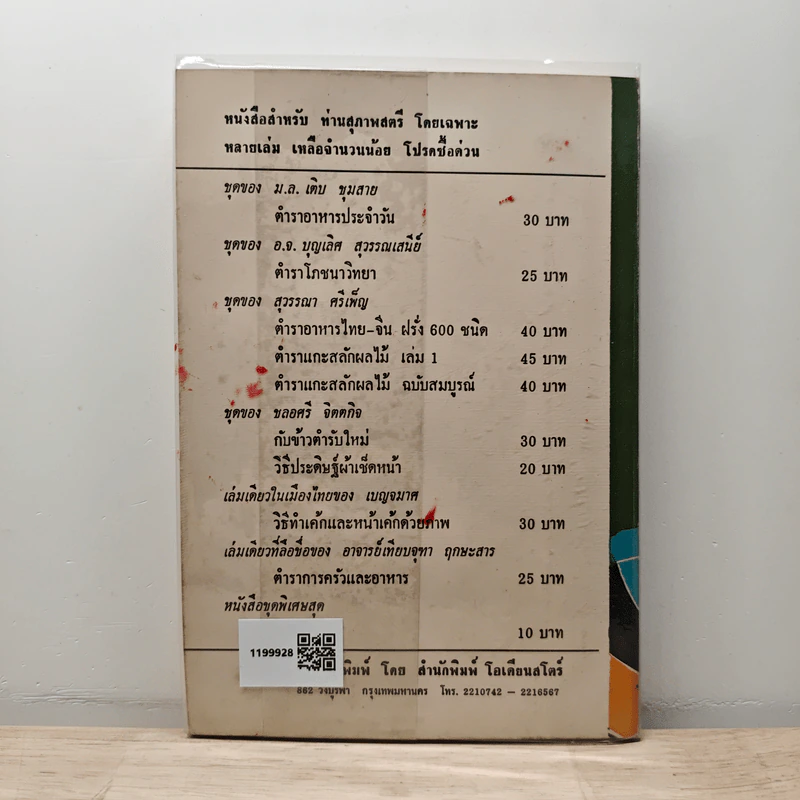 หนังสือสำหรับ ท่านสุภาพสตรี โดยเฉพาะ
หลายเล่ม เหลือจำนวนน้อย โปรดซื้อด่วน
ชุดของ ม.ล. เติบ ชุมสาย
ตำราอาหารประจำวัน 30 บาท
ชุดของ อ.จ. บุญเลิศ สุวรรณเสนีย์
ตำราโภชนาวิทยา 25 บาท
ชุดของ สุวรรณา ศรีเพ็ญ
ตำราอาหารไทย-จีน ฝรั่ง 600 ชนิด 40 บาท
ตำราแกะสลักผลไม้ เล่ม 1 45 บาท
ตำราแกะสลักผลไม้ ฉบับสมบูรณ์ 40 บาท
ชุดของ ชลอศรี จิตตกิจ
กับข้าวตำรับใหม่ 30 บาท
วิธีประดิษฐ์ผ้าเช็ดหน้า 20 บาท
เล่มเดียวในเมืองไทยของ เบญจมาศ
วิธีทำเค้กและหน้าเค้กด้วยภาพ 30 บาท
เล่มเดียวที่ลือชื่อของ อาจารย์เทียบจุฑา ฤกษะสาร
ตำราการครัวและอาหาร 25 บาท
หนังสือชุดพิเศษสุด
10 บาท
1199928
พิมพ์ โดย สำนักพิมพ์ โอเดียนสโตร์
862 วังบูรพา กรุงเทพมหานคร โทร. 2210742 – 2216567